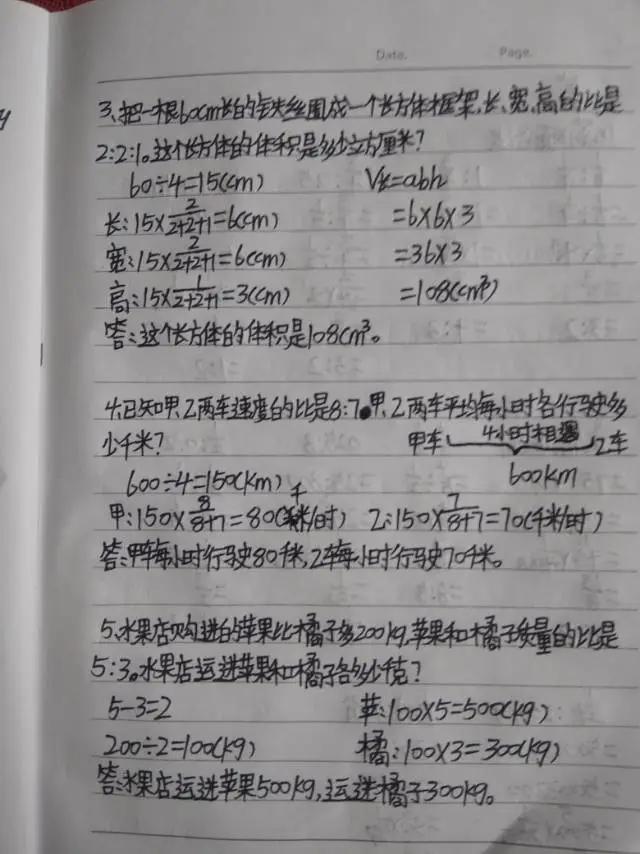 Date.
Page.
3、把一根60cm长的铁丝围成一个长方体框架,长、宽、高的比是
2:2:1。这个长方体的体积是多少立方厘米?
60÷4=15(cm) V长=abh
长:15×2/2+2+1=6(cm) =6×6×3
宽:15×2/2+2+1=6(cm) =36×3
高:15×1/2+2+1=3(cm) =108(cm³)
答:这个长方体的体积是108cm³。
4.已知甲、乙两车速度的比是8:7。甲、乙两车平均每小时各行驶多
少千米?
甲车 4小时相遇 乙车
600km
600÷4=150(km)
甲:150×8/8+7=80(千米/时) 乙:150×7/8+7=70(千米/时)
答:甲车每小时行驶80千米,乙车每小时行驶70千米。
5、水果店购进的苹果比橘子多200kg,苹果和橘子质量的比是
5:3。水果店运进苹果和橘子各多少千克?
5-3=2 苹:100×5=500(kg)
200÷2=100(kg) 橘:100×3=300(kg)
答:水果店运进苹果500kg,运进橘子300kg。